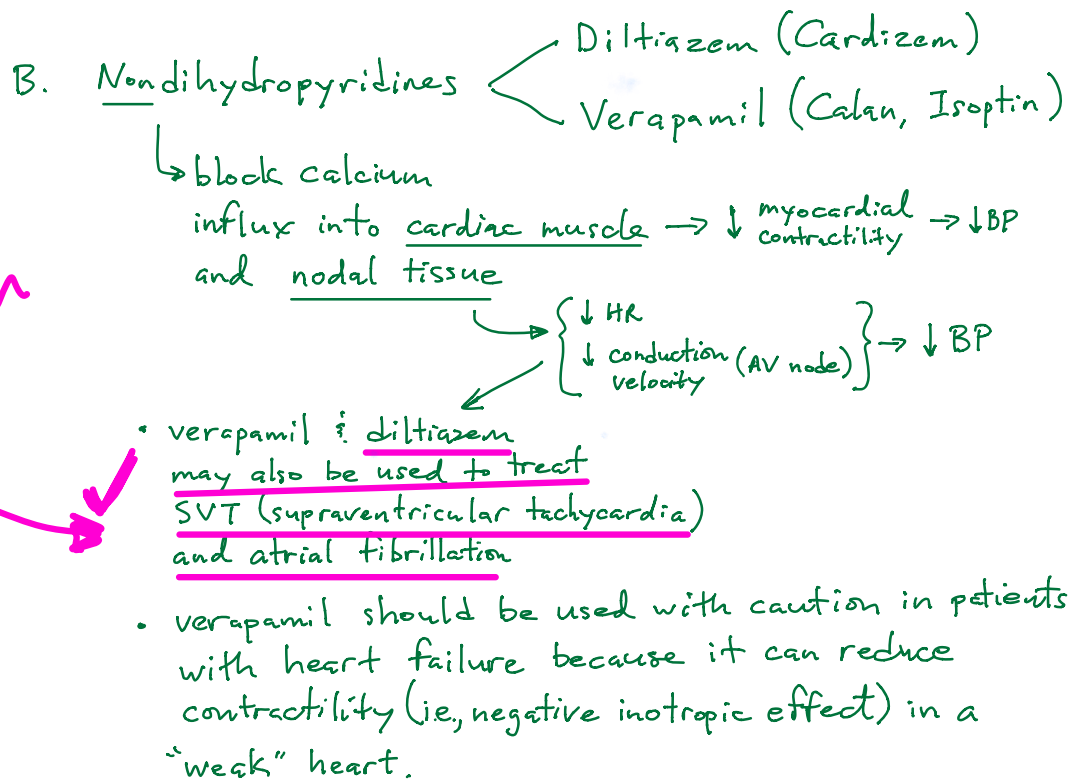 Diltiazem (Cardizem)
B. Nondihydropyridines
Verapamil (Calan, Isoptin)
↳ block calcium
influx into cardiac muscle → ↓ myocardial contractility → ↓BP
and nodal tissue
↓ HR
↓ conduction velocity (AV node) → ↓ BP
• verapamil & diltiazem
may also be used to treat
SVT (supraventricular tachycardia)
and atrial fibrillation
• verapamil should be used with caution in patients
with heart failure because it can reduce
contractility (i.e., negative inotropic effect) in a
"weak" heart.